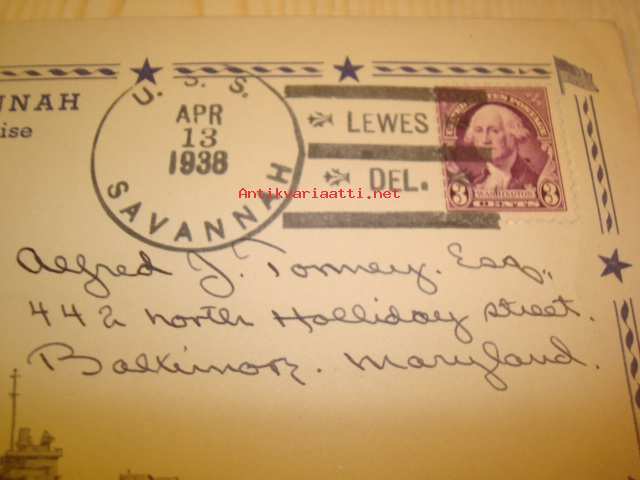 NNAH
ise
U. S. S.
SAVANNAH
APR
13
1938
LEWES
DEL.
WASHINGTON
3 CENTS 3
Antikvariaatti.net
Alfred J. Tommey. Esq.,
442 North Holliday Street.
Baltimore. Maryland.